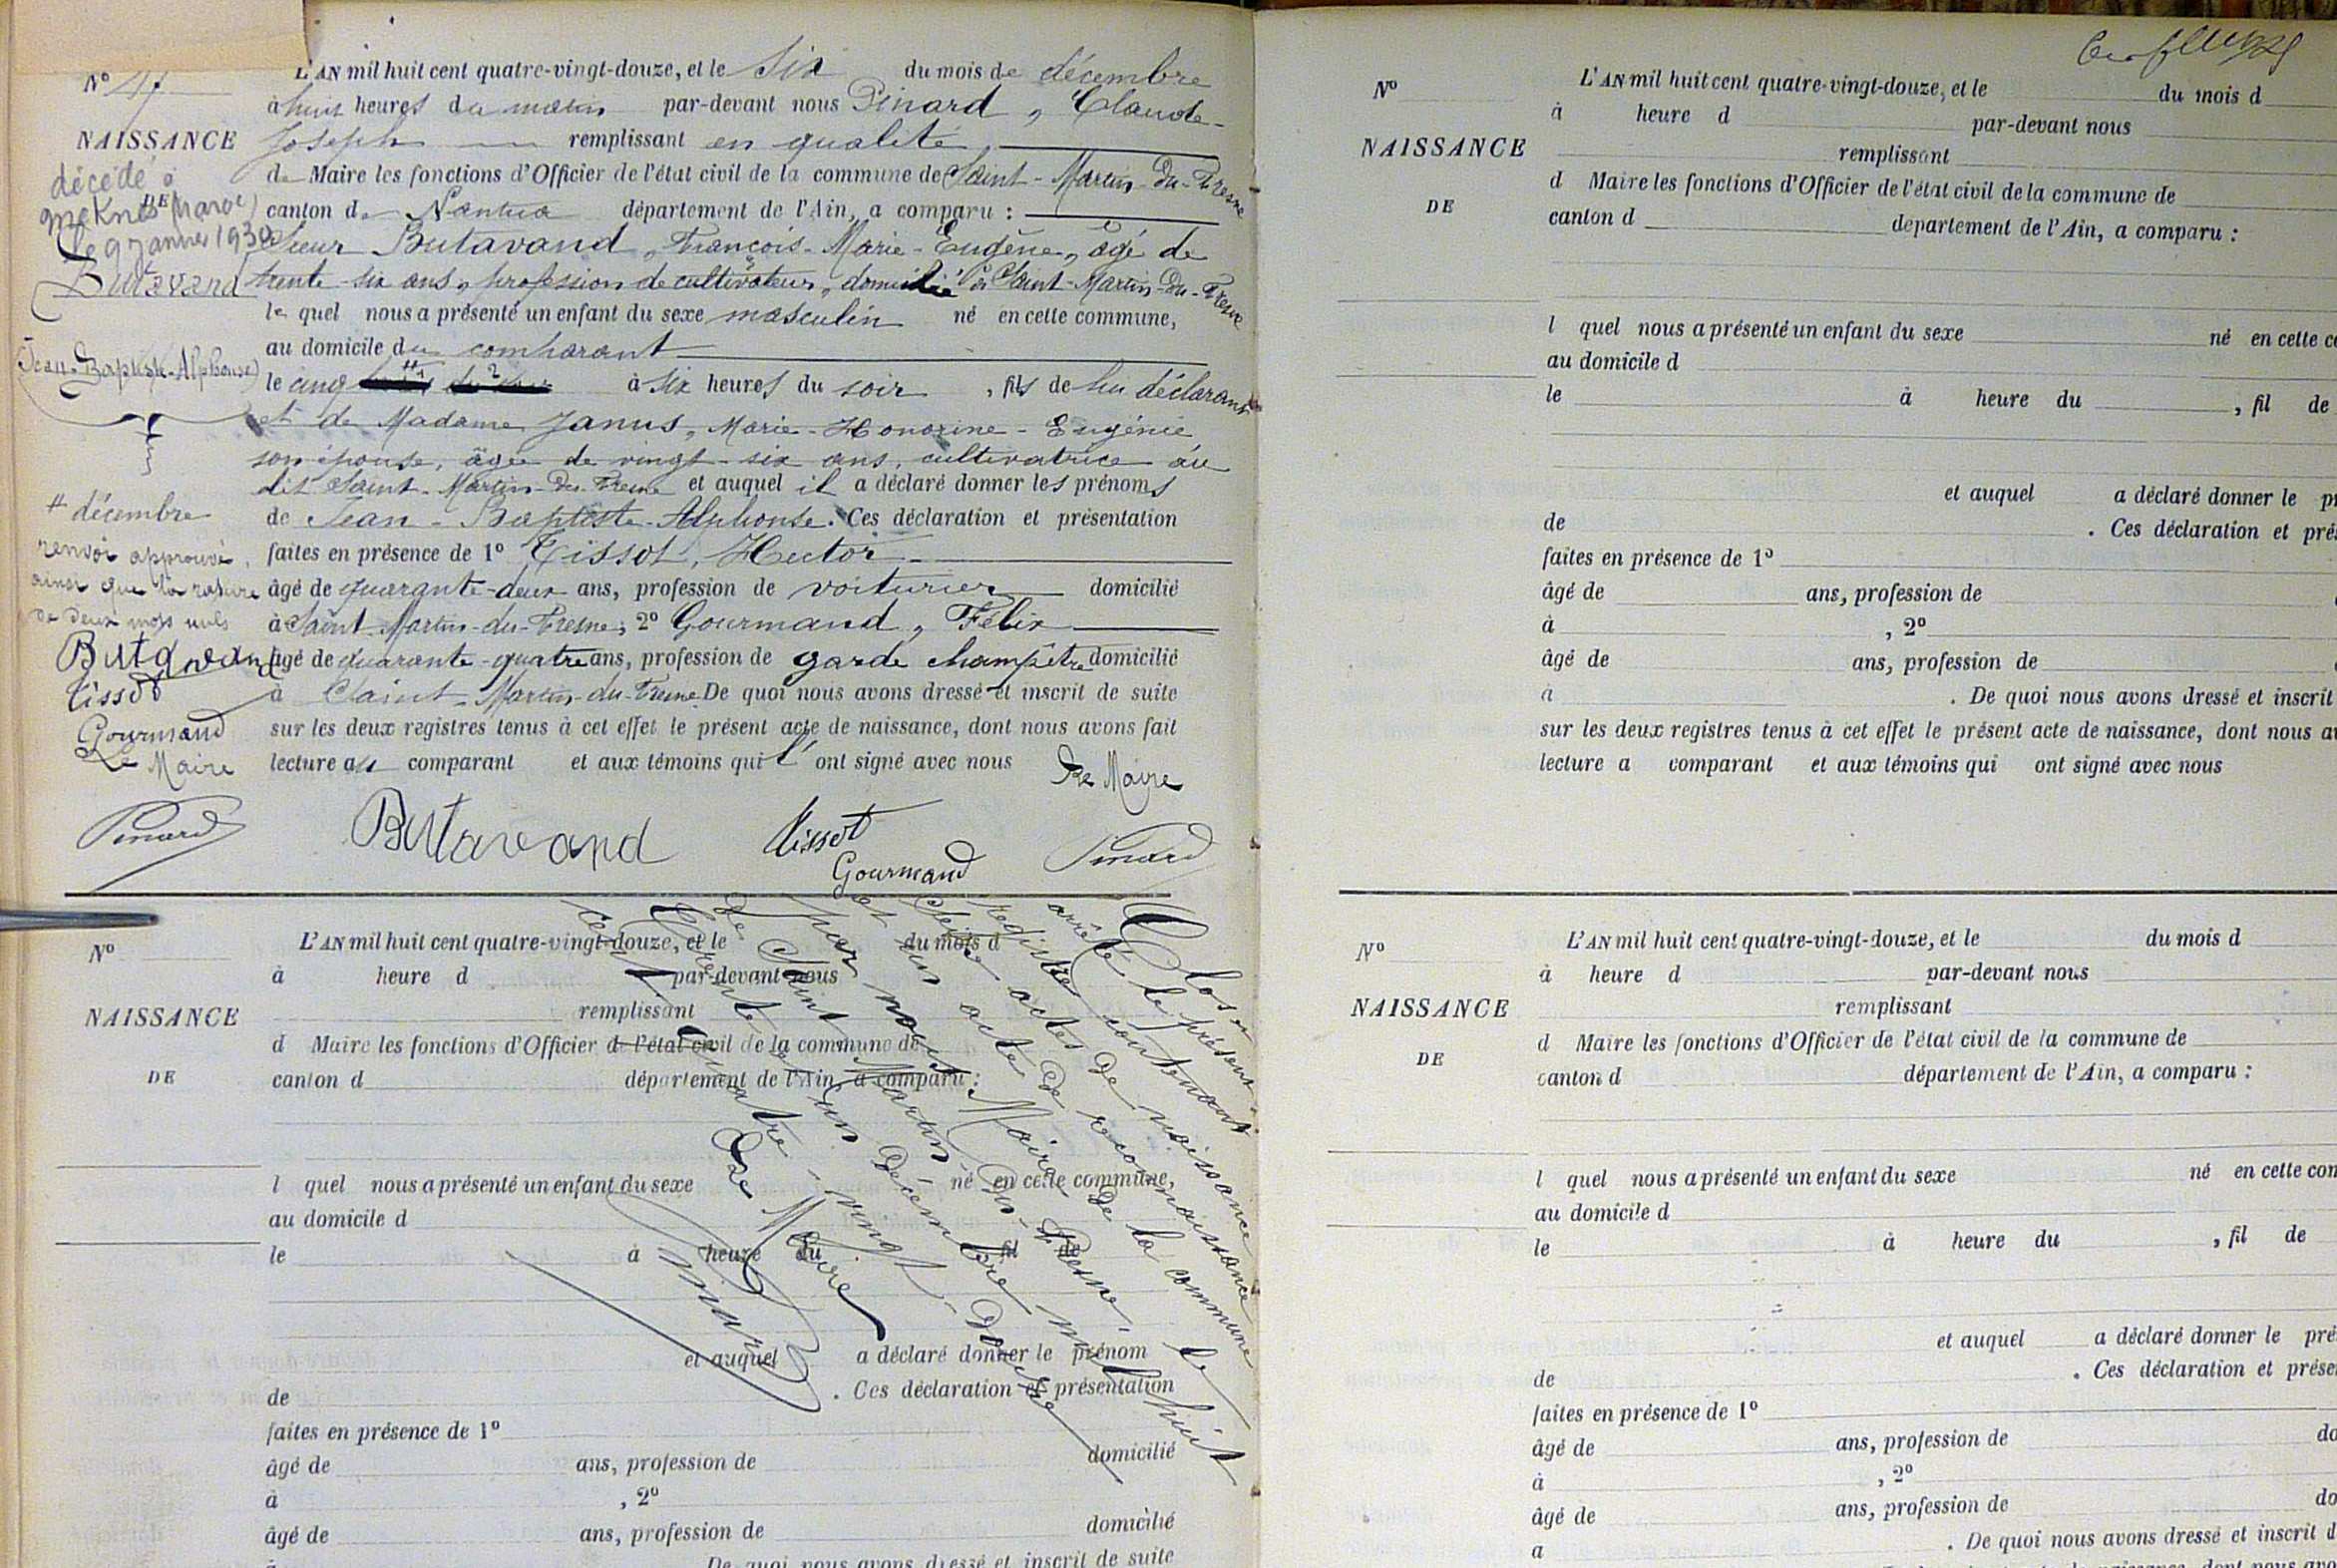 N° 17
NAISSANCE
DE
décédé à
Meknès (Maroc)
le 9 janvier 1930
Butavand
(Jean-Baptiste-Alphonse)
# décembre
renvoi approuvé,
ainsi que la rature
de deux mots nuls
Butavand
Tissot
Gourmand
Le Maire
Pinard
L'AN mil huit cent quatre-vingt-douze, et le six du mois de décembre
à huit heures du matin par-devant nous Pinard, Claude-
Joseph remplissant en qualité
de Maire les fonctions d'Officier de l'état civil de la commune de Saint-Martin-du-Fresne
canton de Nantua département de l'Ain, a comparu :
Sieur Butavand, François-Marie-Eugène, âgé de
trente-six ans, profession de cultivateur, domicilié à Saint-Martin-du-Fresne
le quel nous a présenté un enfant du sexe masculin né en cette commune,
au domicile du comparant
le cinq # à six heures du soir, fils de lui déclarant
et de Madame Janus, Marie-Honorine-Eugénie
son épouse, âgée de vingt-six ans, cultivatrice au
dit Saint-Martin-du-Fresne et auquel il a déclaré donner les prénoms
de Jean-Baptiste-Alphonse. Ces déclaration et présentation
faites en présence de 1° Tissot, Hector
âgé de quarante-deux ans, profession de voiturier domicilié
à Saint-Martin-du-Fresne; 2° Gourmand, Félix
âgé de quarante-quatre ans, profession de garde champêtre domicilié
à Saint-Martin-du-Fresne. De quoi nous avons dressé et inscrit de suite
sur les deux registres tenus à cet effet le présent acte de naissance, dont nous avons fait
lecture au comparant et aux témoins qui l'ont signé avec nous Le Maire
Butavand Tissot Gourmand Pinard
N°
NAISSANCE
DE
L'AN mil huit cent quatre-vingt-douze, et le du mois d
à heure d par-devant nous
remplissant
d Maire les fonctions d'Officier de l'état civil de la commune de
canton d département de l'Ain, a comparu :
l quel nous a présenté un enfant du sexe né en cette commune,
au domicile d
le à heure du fil de
et auquel a déclaré donner le prénom
de . Ces déclaration et présentation
faites en présence de 1°
âgé de ans, profession de domicilié
à , 2°
âgé de ans, profession de domicilié
De quoi nous avons dressé et inscrit de suite
Clos et
arrêté le présent
registre contenant
actes de naissance
et un acte de reconnaissance
par nous Maire de la commune
de Saint Martin-du-Fresne, le
trente un décembre mil huit
cent quatre-vingt-douze
Le Maire
Pinard
N°
NAISSANCE
DE
L'AN mil huit cent quatre-vingt-douze, et le du mois d
à heure d par-devant nous
remplissant
d Maire les fonctions d'Officier de l'état civil de la commune de
canton d département de l'Ain, a comparu :
l quel nous a présenté un enfant du sexe né en cette co
au domicile d
le à heure du , fil de
et auquel a déclaré donner le pr
de . Ces déclaration et prés
faites en présence de 1°
âgé de ans, profession de
à , 2°
âgé de ans, profession de
à . De quoi nous avons dressé et inscrit
sur les deux registres tenus à cet effet le présent acte de naissance, dont nous av
lecture a comparant et aux témoins qui ont signé avec nous
N°
NAISSANCE
DE
L'AN mil huit cent quatre-vingt-douze, et le du mois d
à heure d par-devant nous
remplissant
d Maire les fonctions d'Officier de l'état civil de la commune de
canton d département de l'Ain, a comparu :
l quel nous a présenté un enfant du sexe né en cette com
au domicile d
le à heure du , fil de
et auquel a déclaré donner le pré
de . Ces déclaration et prése
faites en présence de 1°
âgé de ans, profession de do
à , 2°
âgé de ans, profession de do
a . De quoi nous avons dressé et inscrit d